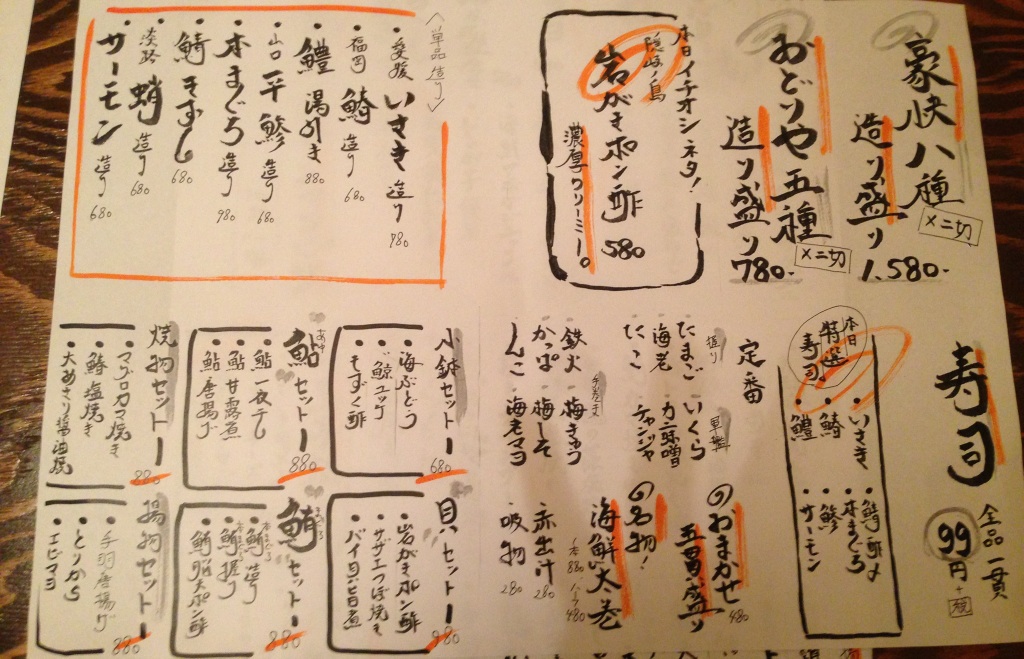 豪快八種
造り盛り
×二切
1.580-
おどりや五種
造り盛り
×二切
780-
本日イチオシネタ!
隠岐ノ島
岩がきポン酢 580
濃厚クリーミー。
〈単品造り〉
・愛媛 いさき 造り 780
・福岡 鰆 造り 680
・鱧 湯引き 880
・山口 平鯵 造り 680
・本まぐろ 造り 980
・鯖きずし 680
・淡路 蛸 造り 680
・サーモン 造り 680
寿司
全品一貫
99円+税
本日特選寿司
・いさき
・鰆
・鱧
・鯖酢〆
・本まぐろ
・鯵
・サーモン
定番
握り
・たまご
・海老
・たこ
軍艦
・いくら
・カニ味噌
・チャンジャ
手巻き
・鉄火
・かっぱ
・しんこ
・梅きゅう
・梅しそ
・海老マヨ
のおまかせ
五貫盛り 480
の名物!
海鮮太巻
一本 880 ハーフ 480
赤出汁 280
吸物 280
小鉢セット 680
・海ぶどう
・鯨ユッケ
・もずく酢
鮎セット 880
・鮎一夜干し
・鮎甘露煮
・鮎唐揚げ
焼物セット 880
・マグロカマ焼き
・鰆塩焼き
・大あさり醤油焼
貝セット 980
・岩がきポン酢
・サザエつぼ焼き
・バイ貝旨煮
鮪セット 880
・本まぐろ 鮪造り
・本まぐろ 鮪握り
・鮪脳天ポン酢
揚物セット 880
・手羽唐揚げ
・とりから
・エビマヨ